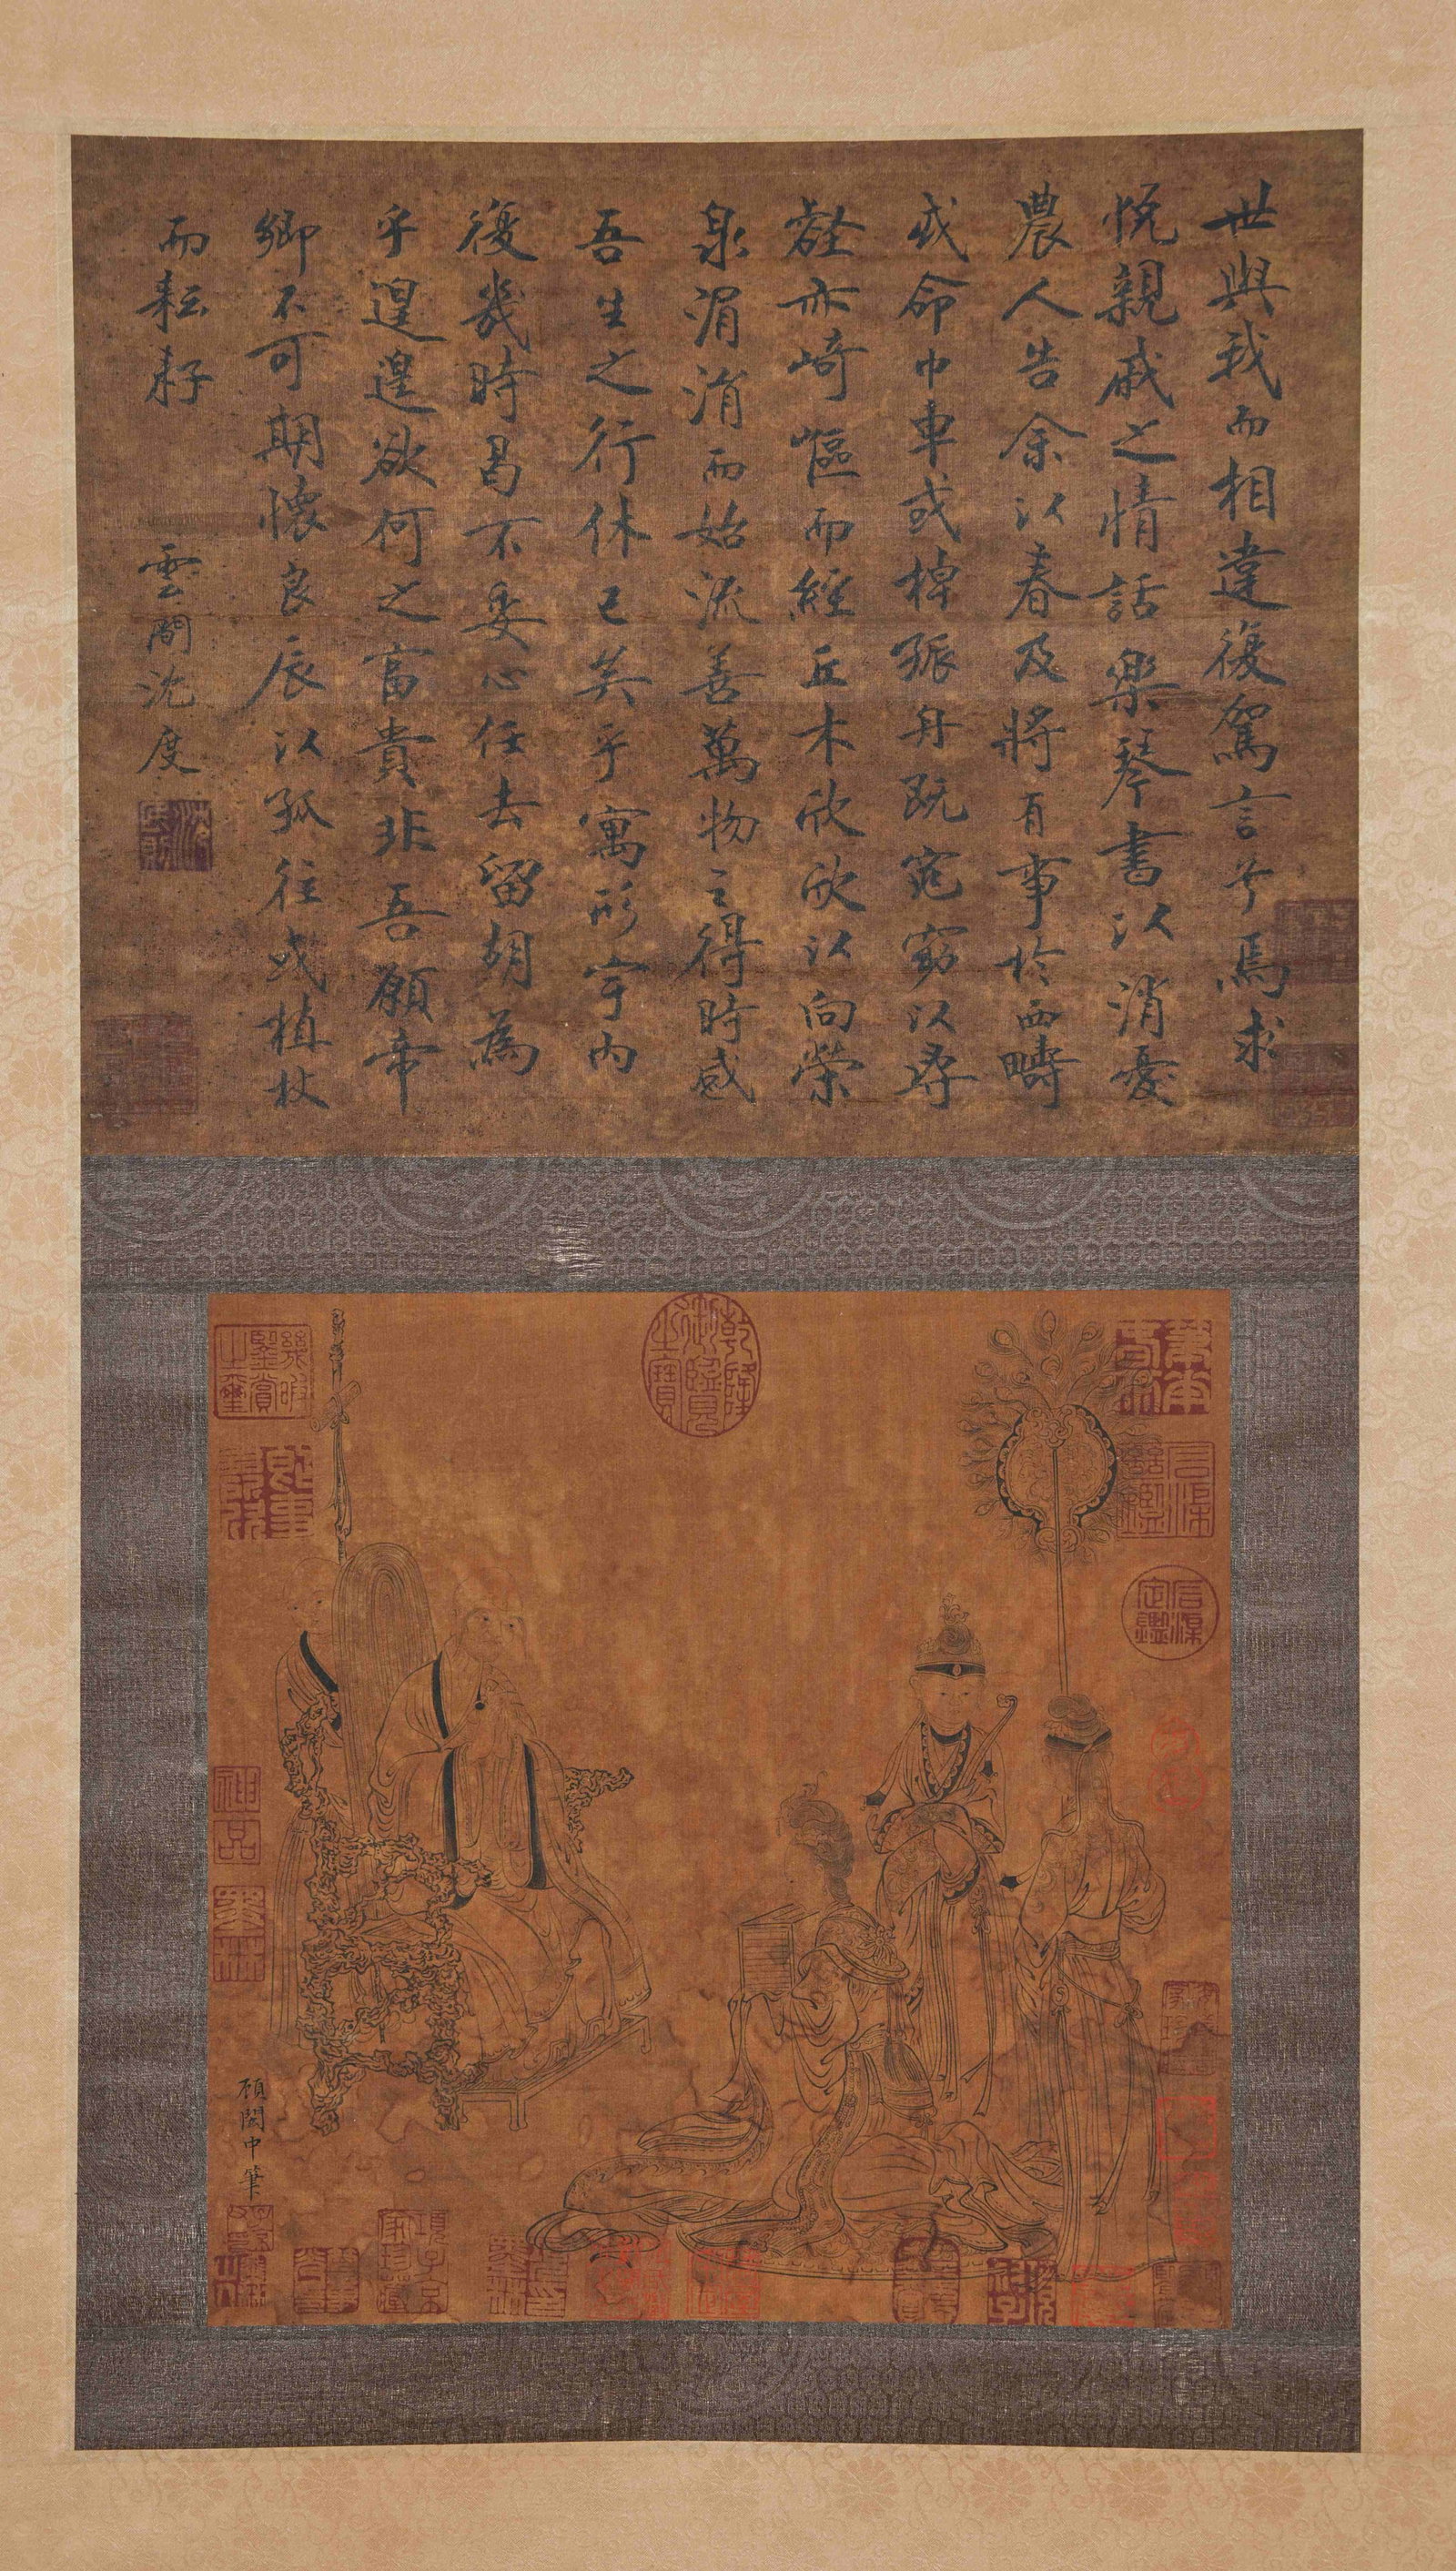 世與我而相違復駕言兮焉求
悅親戚之情話樂琴書以消憂
農人告余以春及將有事於西疇
或命巾車或棹孤舟既窕窈以尋
壑亦崎嶇而經丘木欣欣以向榮
泉涓涓而始流善萬物之得時感
吾生之行休已矣乎寓形宇內
復幾時曷不委心任去留胡為
乎遑遑欲何之富貴非吾願帝
鄉不可期懷良辰以孤往或植杖
而耘耔 雲間沈度
乾隆御覽之寶
幾暇鑒賞之璽
神品
顾閎中筆
項子京家珍藏